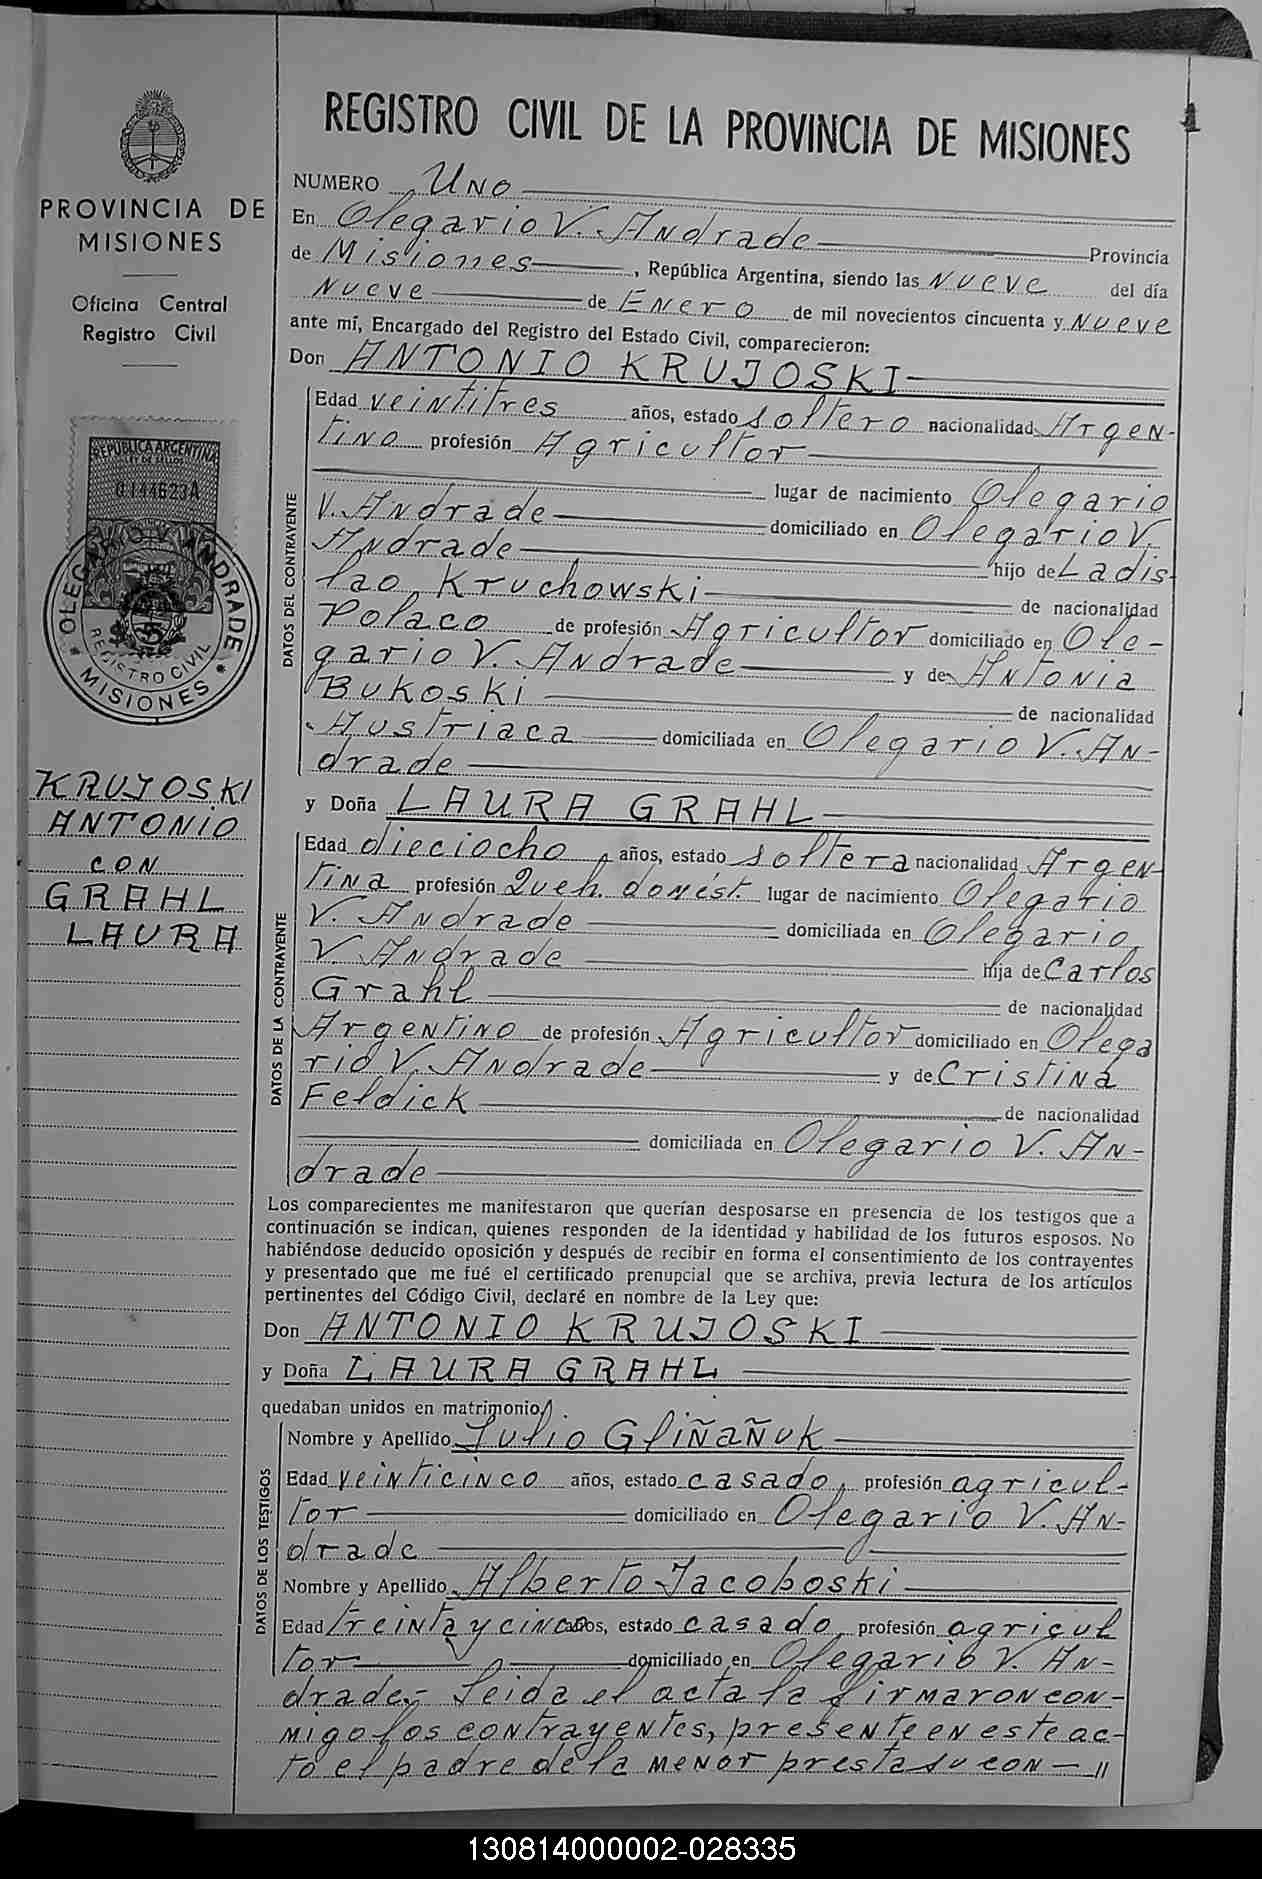 REGISTRO CIVIL DE LA PROVINCIA DE MISIONES
1
PROVINCIA DE
MISIONES
Oficina Central
Registro Civil
REPUBLICA ARGENTINA
0144623A
OLEGARIO V. ANDRADE
REGISTRO CIVIL
* MISIONES *
KRUJOSKI
ANTONIO
CON
GRAHL
LAURA
NUMERO Uno
En Olegario V. Andrade Provincia
de Misiones, República Argentina, siendo las Nueve del día
Nueve de Enero de mil novecientos cincuenta y Nueve
ante mí, Encargado del Registro del Estado Civil, comparecieron:
Don ANTONIO KRUJOSKI
DATOS DEL CONTRAVENTE
Edad veintitres años, estado soltero nacionalidad Argen-
tino profesión Agricultor
lugar de nacimiento Olegario
V. Andrade domiciliado en Olegario V.
Andrade hijo de Ladis-
lao Kruchowski de nacionalidad
Polaco de profesión Agricultor domiciliado en Ole-
gario V. Andrade y de Antonia
Bukoski de nacionalidad
Austriaca domiciliada en Olegario V. An-
drade
y Doña LAURA GRAHL
DATOS DE LA CONTRAYENTE
Edad dieciocho, años, estado soltera nacionalidad Argen-
tina profesión Queh. domést. lugar de nacimiento Olegario
V. Andrade domiciliada en Olegario
V. Andrade hija de Carlos
Grahl de nacionalidad
Argentino de profesión Agricultor domiciliado en Olega
rio V. Andrade y de Cristina
Feldick de nacionalidad
domiciliada en Olegario V. An-
drade
Los comparecientes me manifestaron que querían desposarse en presencia de los testigos que a
continuación se indican, quienes responden de la identidad y habilidad de los futuros esposos. No
habiéndose deducido oposición y después de recibir en forma el consentimiento de los contrayentes
y presentado que me fué el certificado prenupcial que se archiva, previa lectura de los artículos
pertinentes del Código Civil, declaré en nombre de la Ley que:
Don ANTONIO KRUJOSKI
y Doña LAURA GRAHL
quedaban unidos en matrimonio
DATOS DE LOS TESTIGOS
Nombre y Apellido Julio Gliñañuk
Edad veinticinco años, estado casado, profesión agricul-
tor domiciliado en Olegario V. An-
drade
Nombre y Apellido Alberto Jacoboski
Edad treinta y cinco años, estado casado, profesión agricul
tor domiciliado en Olegario V. An-
drade,- Leida el acta la firmaron con-
migo los contrayentes, presente en este ac-
to el padre de la menor presta su con-//
130814000002-028335